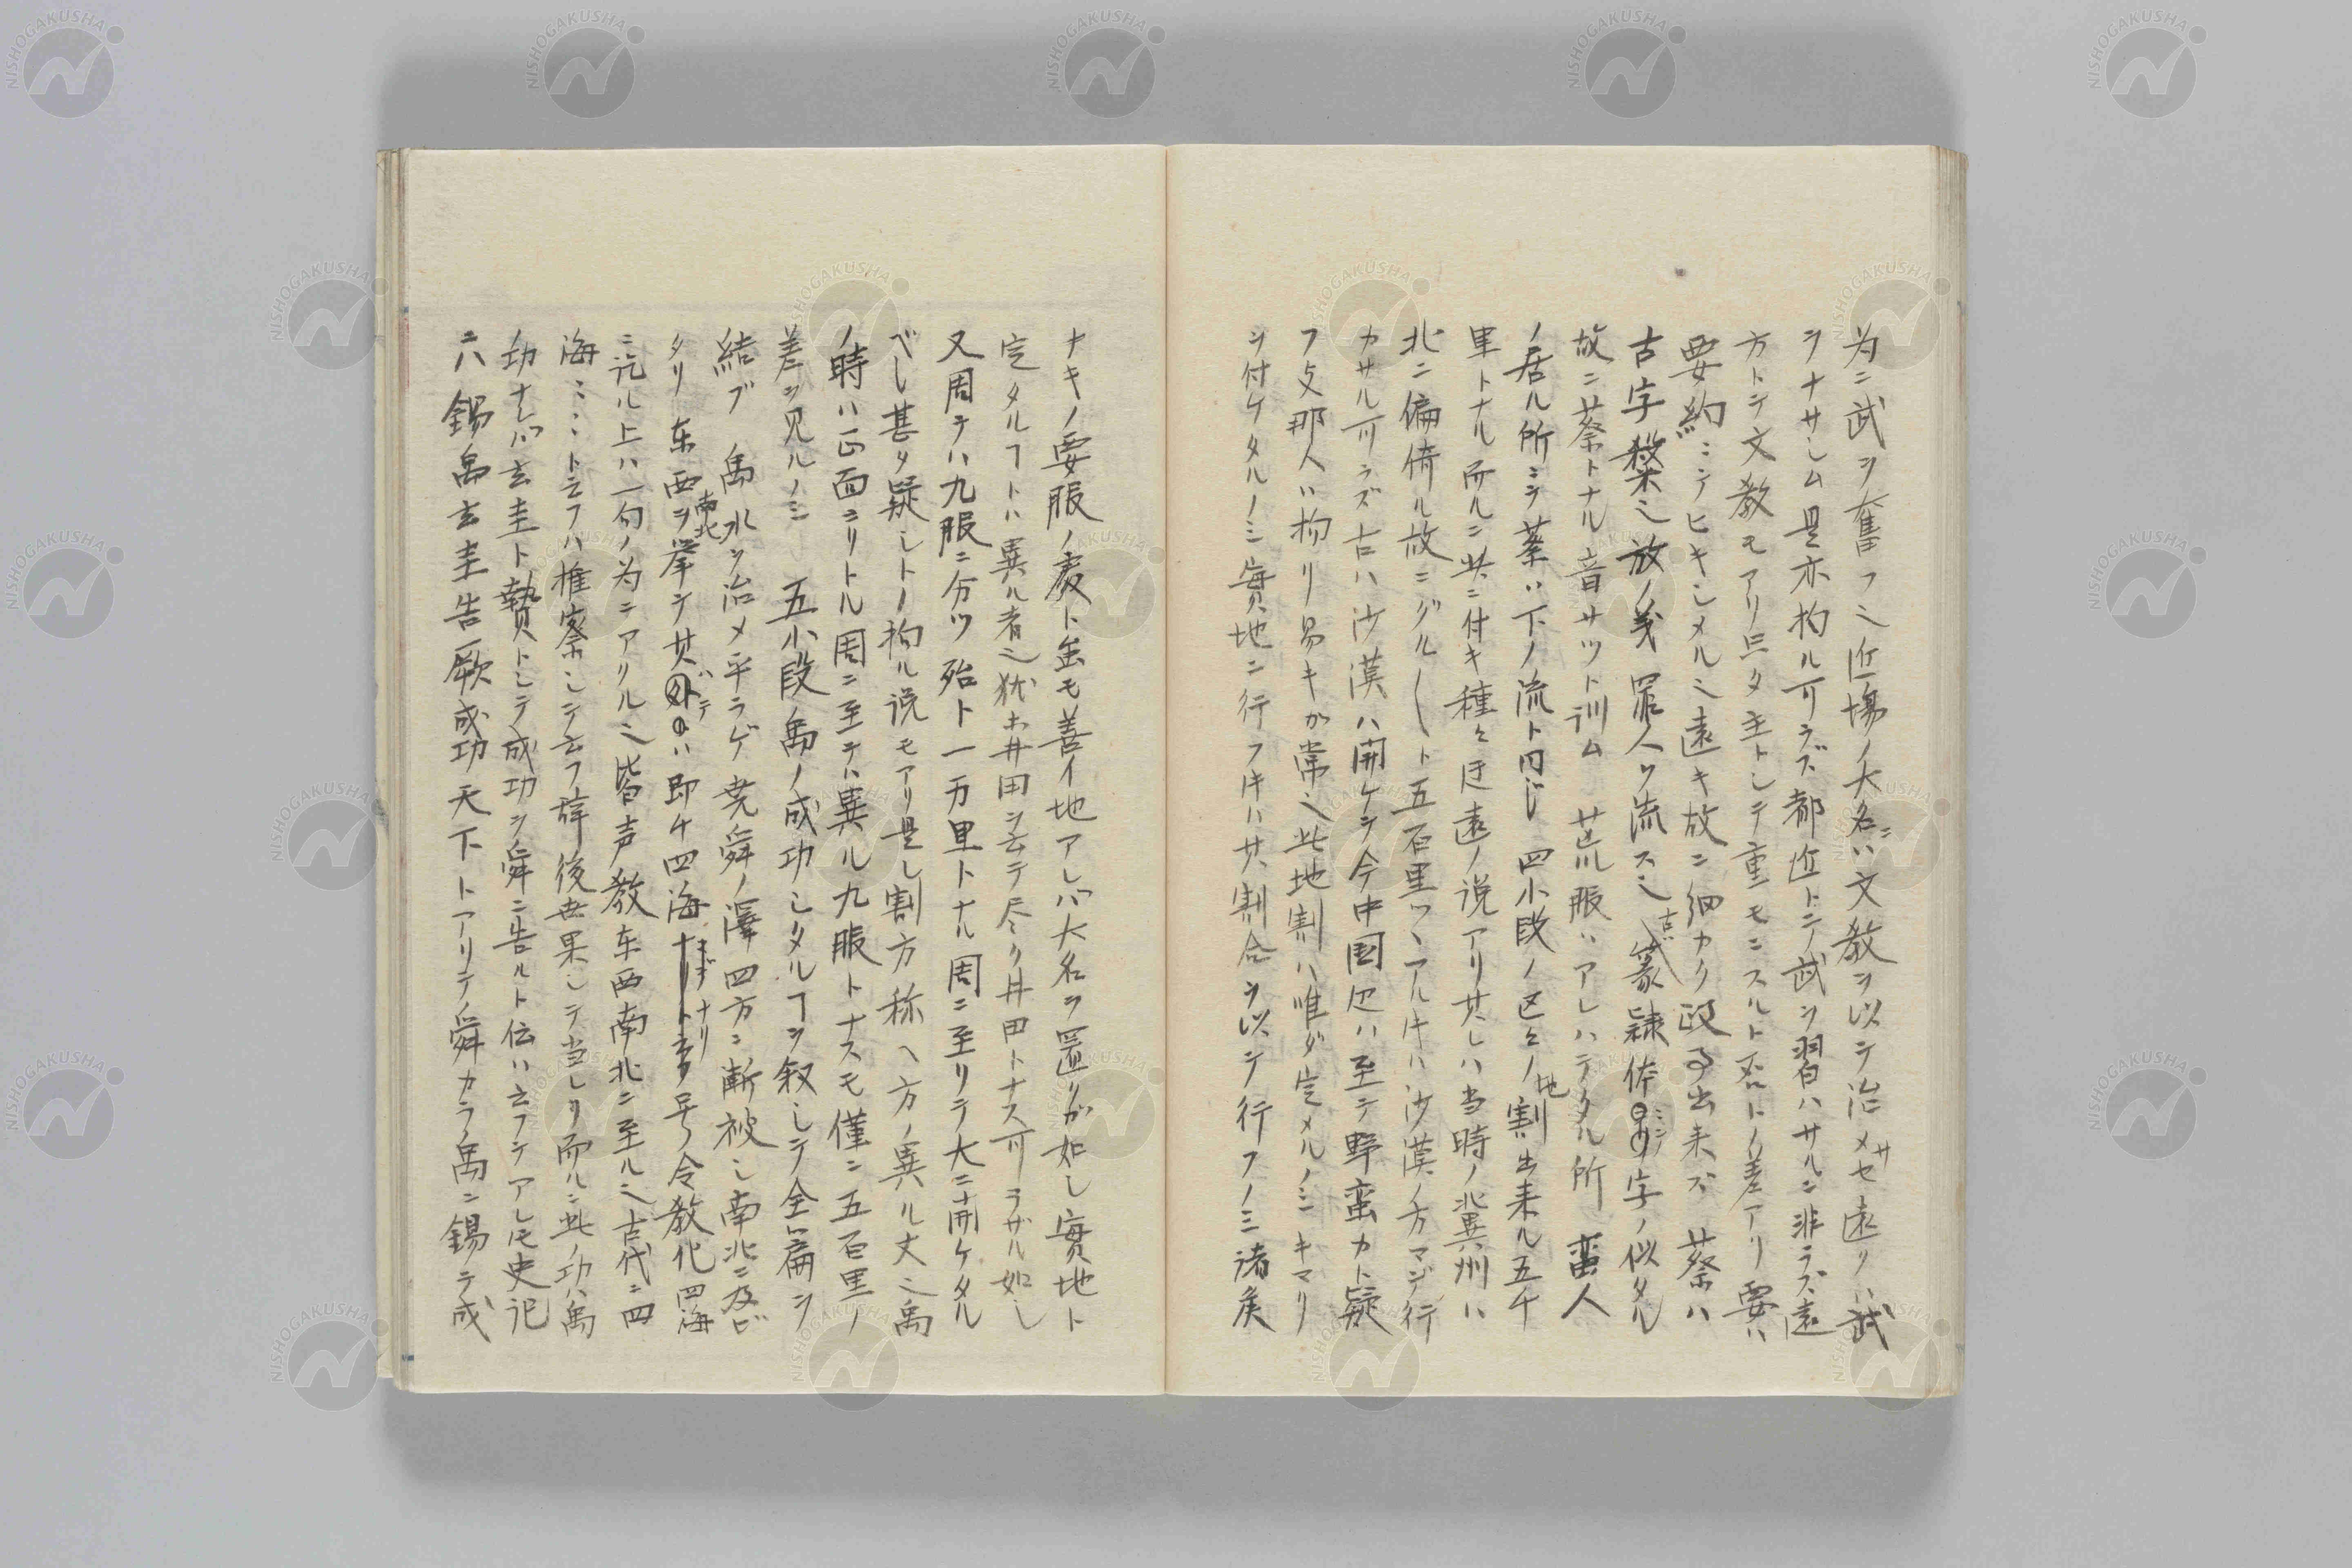 為ニ武ヲ奮フ也近場ノ大名ニハ文教ヲ以テ治メサセ遠クハ武
ヲナサシム是亦拘ル可ラズ都近トテ武ヲ習ハサルニ非ラズ遠
方トテ文教モアリ只タ主トシテ重モニスルト否トノ差アリ要ハ
要約ニテヒキシメル也遠キ故ニ細カク政事出来ズ 蔡ハ
古字 也放ノ義 罪人ヲ流ス也古ヘ篆隷体 ミナ字ノ似タル
故ニ蔡トナル音サツト訓ム 荒服ハアレハテタル所 蛮人
ノ居ル所ニテ蔡ハ下ノ流ト同じ 四小段ノ区々ノ地割出来ル五千
里トナル而ルニ共ニ付キ種々迂遠ノ説アリ其レハ当時ノ冀州ハ
北ニ偏倚ル故ニグル〱ト五百里ヅヽアルキハ沙漠ノ方マデ行
カサル可ラズ古ハ沙漠ハ開ケテ今中国辺ハ至テ野蛮カト疑
フ支那人ハ拘リ易キガ常也此地割ハ唯ダ定メルノミキマリ
ヲ付ケタルノミ實地ニ行フ片ハ其割合ヲ以テ行フノミ諸侯
ナキノ要服ノ處ト雖モ善イ地アレバ大名ヲ置クガ如し實地ト
定タルヿトハ異ル者也猶お井田ヲ云テ尽ク井田トナス可ラザル如し
又周テハ九服ニ分ツ殆ト一万里トナル周ニ至リテ大ニ開ケタル
べし甚タ疑しトノ拘ル説モアリ是し割方称ヘ方ノ異ル丈也禹
ノ時ハ正面ニリトル周ニ至テハ異ル九服トナスモ僅ニ五百里ノ
差ヲ見ルノミ 五小段禹ノ成功しタルヿヲ叙しテ全篇ヲ
結ブ 禹水ヲ治メ平ラゲ 尭舜ノ澤四方ニ漸被し南北ニ及ビ
タリ 东西ヲ挙テ南北其外ハテハ即チ四海マデナリ 号令教化四海
ニ訖ル上ハ一句ノ為ニアリル也皆声教东西南北ニ至ル也古代ニ四
海ニミトテフハ推察しテ云フ辞後世果しテ当しリ而ルニ此ノ功ハ禹
功ナレバ玄圭ト贄トしテ成功ヲ舜ニ告ルト伝ハ云フテアレ𪜈史记
ニハ 錫禹玄圭告厥成功天下トアリテノ舜カラノ禹ニ錫テ成
NISHOGAKUSHA